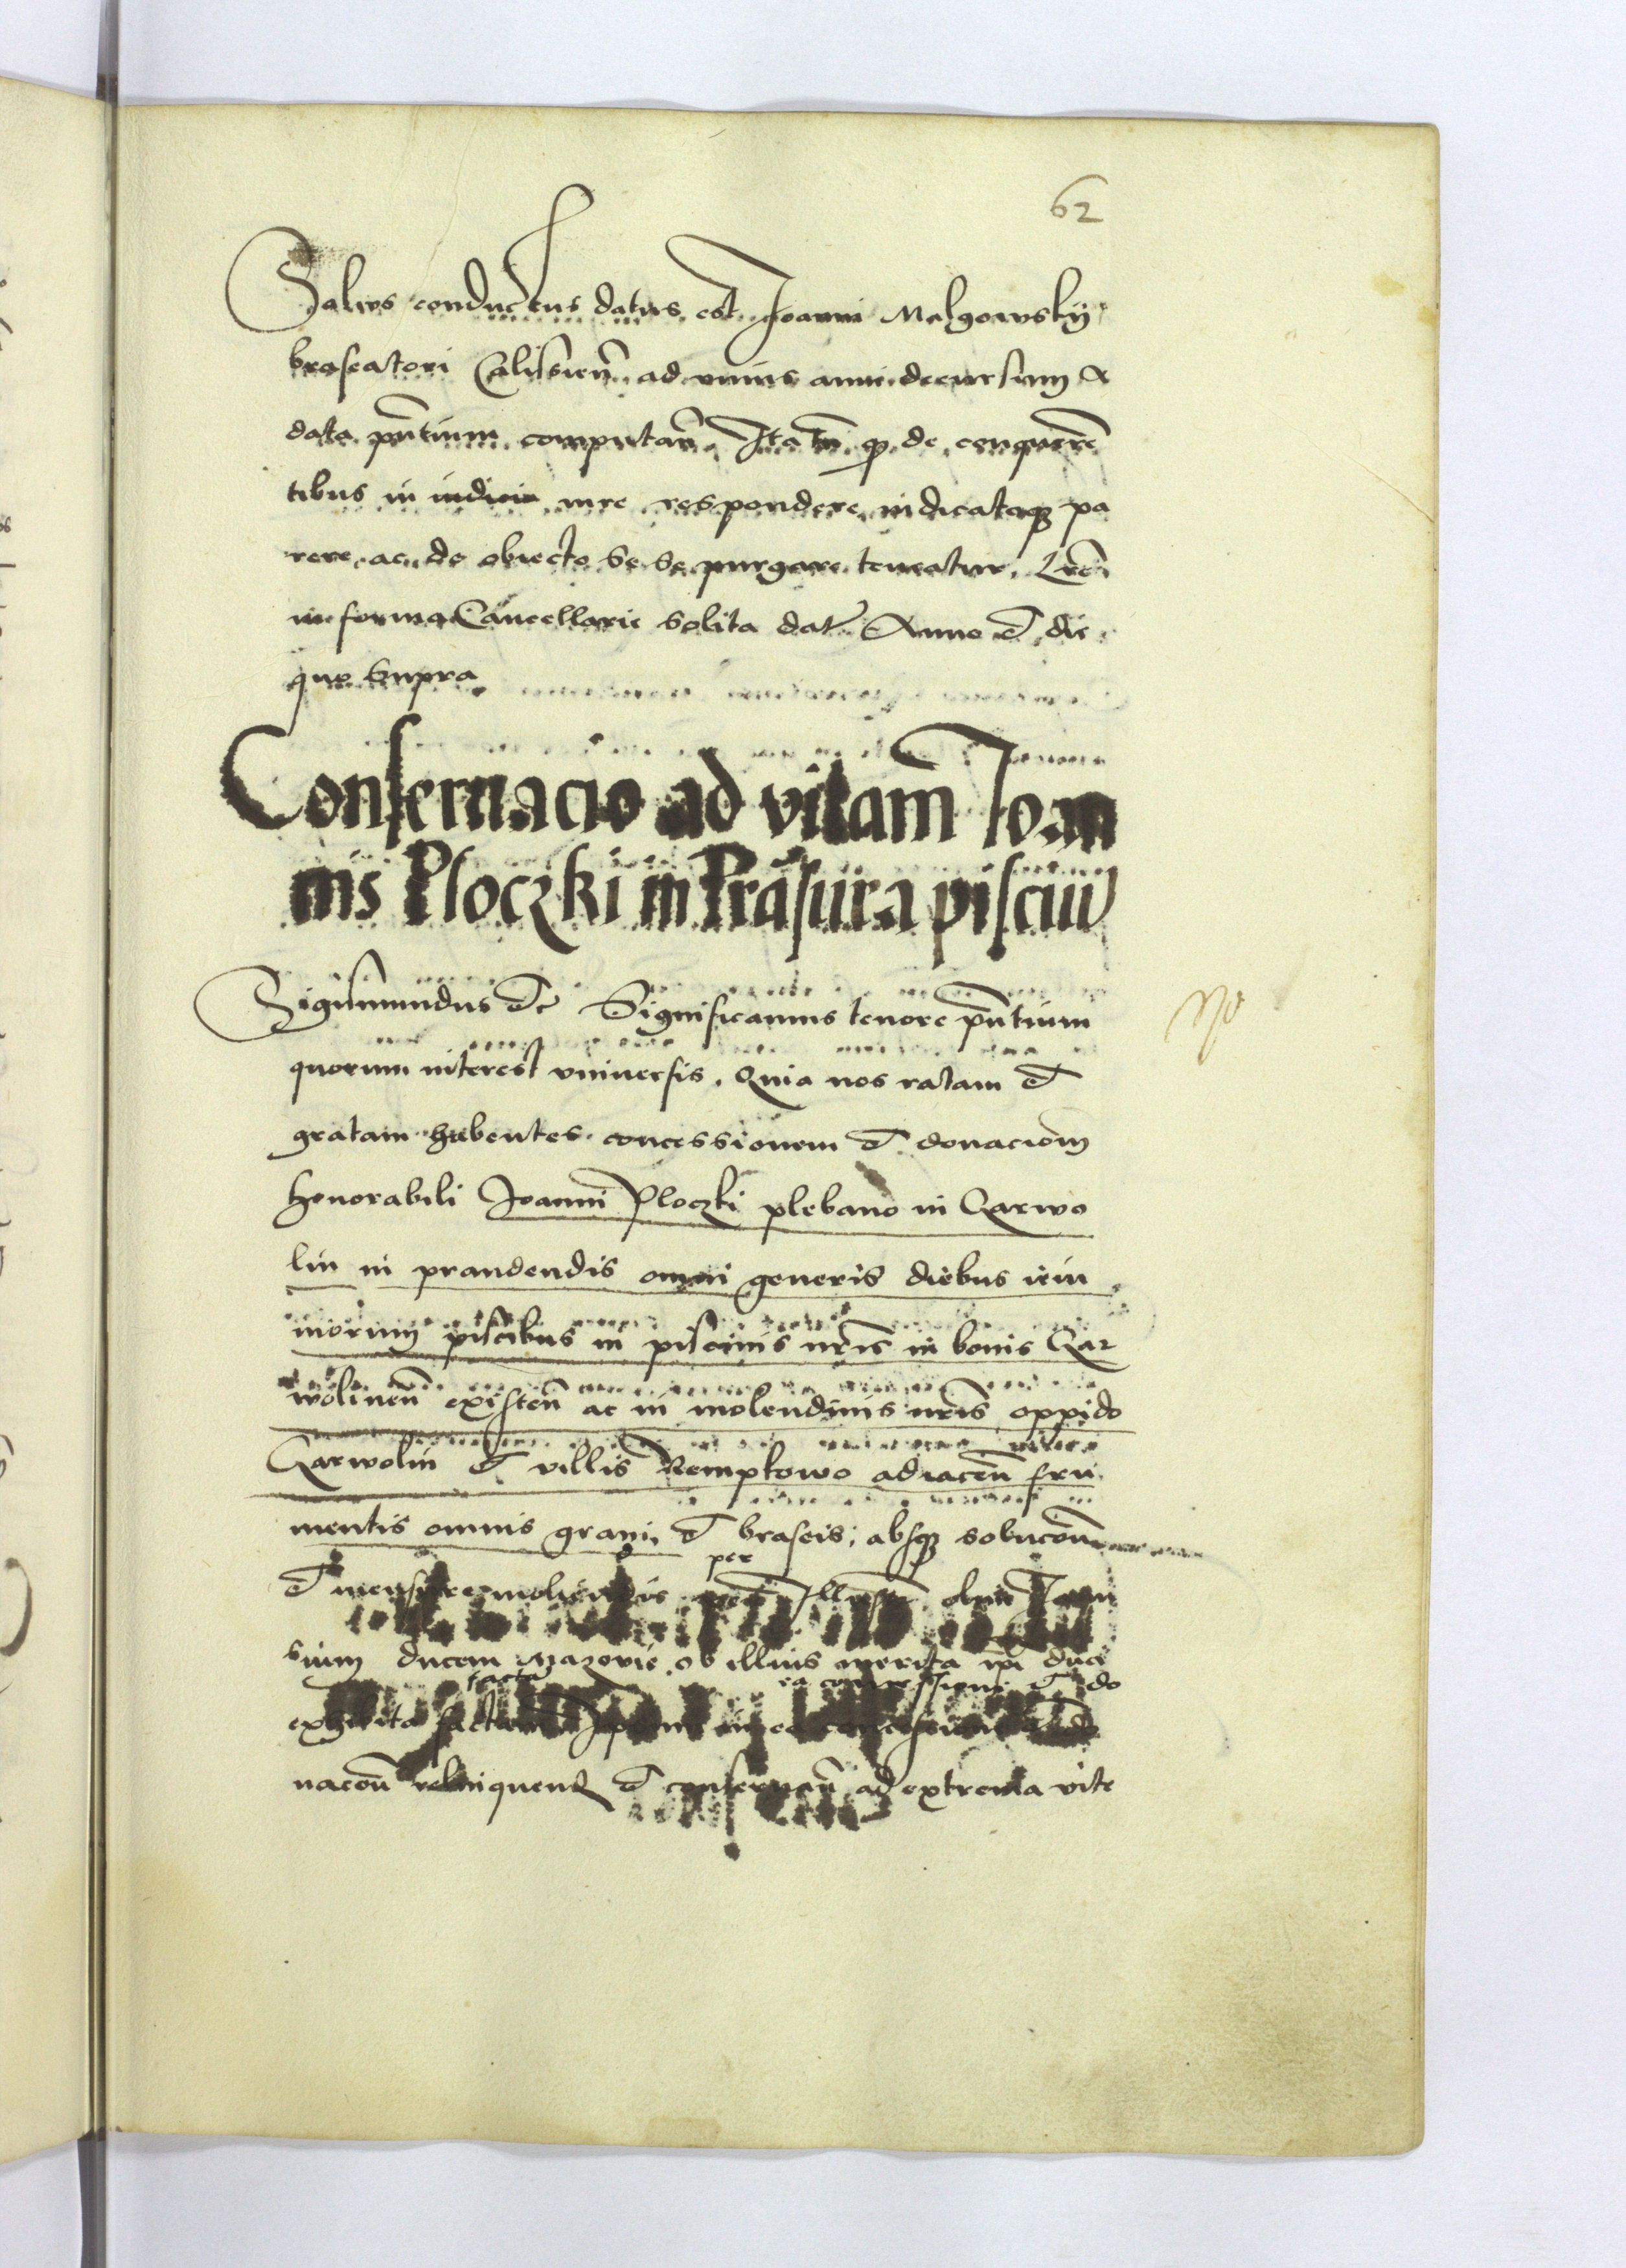 62
Salvus conductus datus est Joanni Malgowskÿ
braseatori Calisien̄ ad unius anni decursum a
data pn̄tium computan̄ Ita tn̄ q de conqueren̄
tibus in iudicio iure respondere iudicatoq pa
rere ac de obiecto se se purgare teneatur Lrē
in forma Cancellarie solita dat Anno et die
quo supra
Conservacio ad vitam Joan
nis Ploczki in Prasura pisciu
Sigismundus etc Significamus tenore pn̄tium
quorum interest universis. Quia nos ratam et
gratam habentes concessionem et donaciom̄
honorabili Joanni Ploczki plebano in Garwo
lin in prandendis omni generis diebus ieiu
niorum piscibus in piscinis nr̄is in bonis Gar
wolinen̄ existen̄ ac in molendinis nr̄is oppido
Garwolin et villis Remptowo adiacen̄ fru
mentis omnis grani et braseis, absq solucion̄
per
et mensure molendis Illustr̄ olim Janu
sium ducem Mazovie ob illius merita ipi duci
facta ea concessione et do
exhibita
nacon̄ relinquend et conservan̄ ad extrema vite